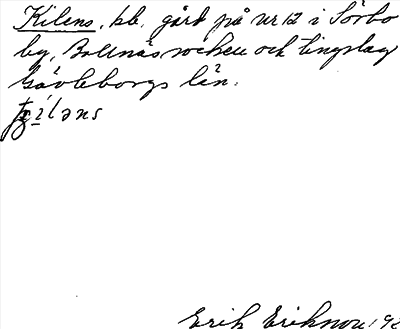 Kilens, bb. gård på nr 12 i Sörbo
by, Bollnäs socken och tingslag
Gävleborgs län.
Erik Eriksson